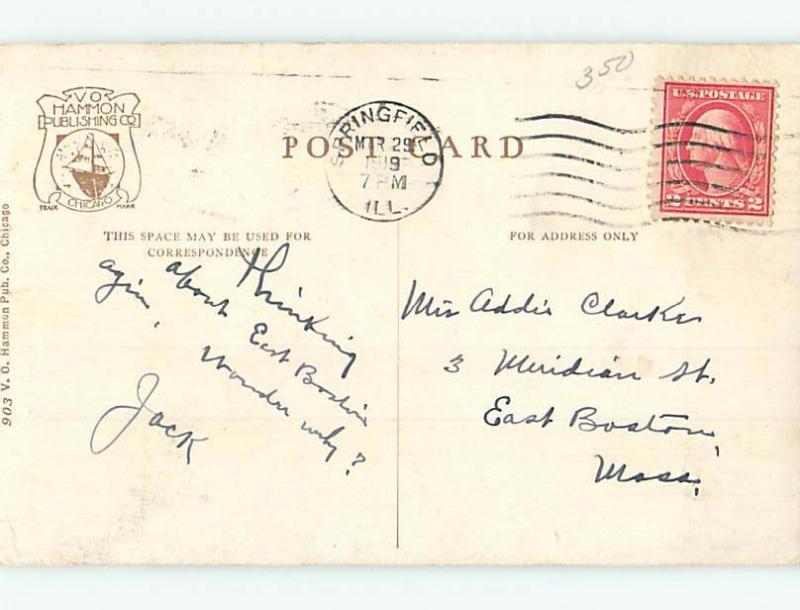 350
V.O.
HAMMON
PUBLISHING CO
CHICAGO
TRADE MARK
POST CARD
SPRINGFIELD
MAR 29
1919
7 PM
ILL.
U.S. POSTAGE
2 CENTS 2
THIS SPACE MAY BE USED FOR
CORRESPONDENCE
FOR ADDRESS ONLY
903 V. O. Hammon Pub. Co., Chicago
Thinking
about East Boston
again, Wonder why?
Jack
Addie Clarker
3 Meridian St.
East Boston,
Mass.